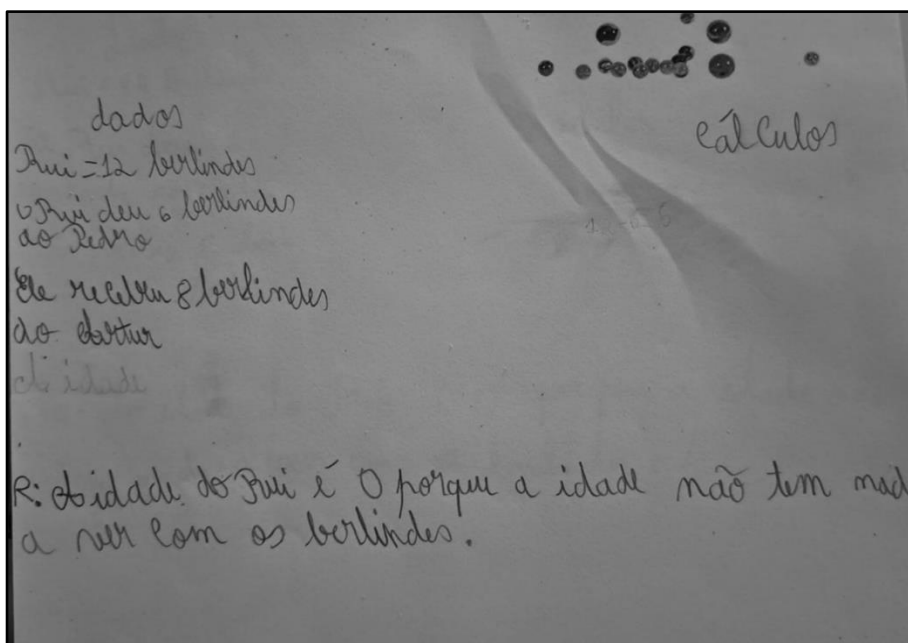 dados
cálculos
Rui = 12 berlindes
o Rui deu 6 berlindes
ao Pedro
Ele recebeu 8 berlindes
do Artur
A idade
R: A idade do Rui é 0 porque a idade não tem nad
a ver com os berlindes.